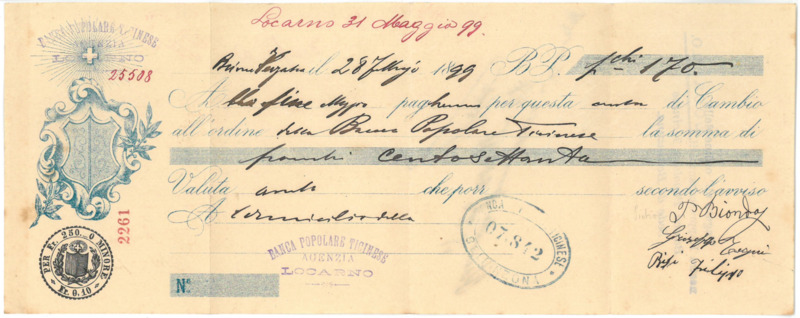 Locarno 31 Maggio 99.
BANCA POPOLARE TICINESE
AGENZIA
LOCARNO
25508
il 28 1899 B.P. fchi 170.
Alla fine Maggio pagheremo per questa di Cambio
all'ordine della Banca Popolare Ticinese la somma di
franchi centosettanta
Valuta che porr secondo l'avviso
A domicilio della
2261
PER Fr. 250. O MINORE
Fr. 0.10
BANCA POPOLARE TICINESE
AGENZIA
LOCARNO
TICINESE
07842
BELLINZONA
No.
Giuseppe
Filippo